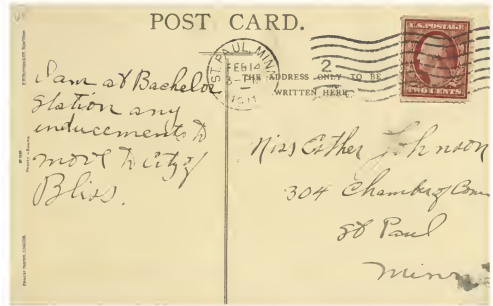 POST CARD.
ST. PAUL, MINN.
FEB 14
3-
1911
2
THE ADDRESS ONLY TO BE
WRITTEN HERE.
U.S. POSTAGE
TWO CENTS
I am at Bachelor
Station any
inducements to
move to City of
Bliss.
Miss Esther Johnson
304 Chamber of Com
St Paul
Minn